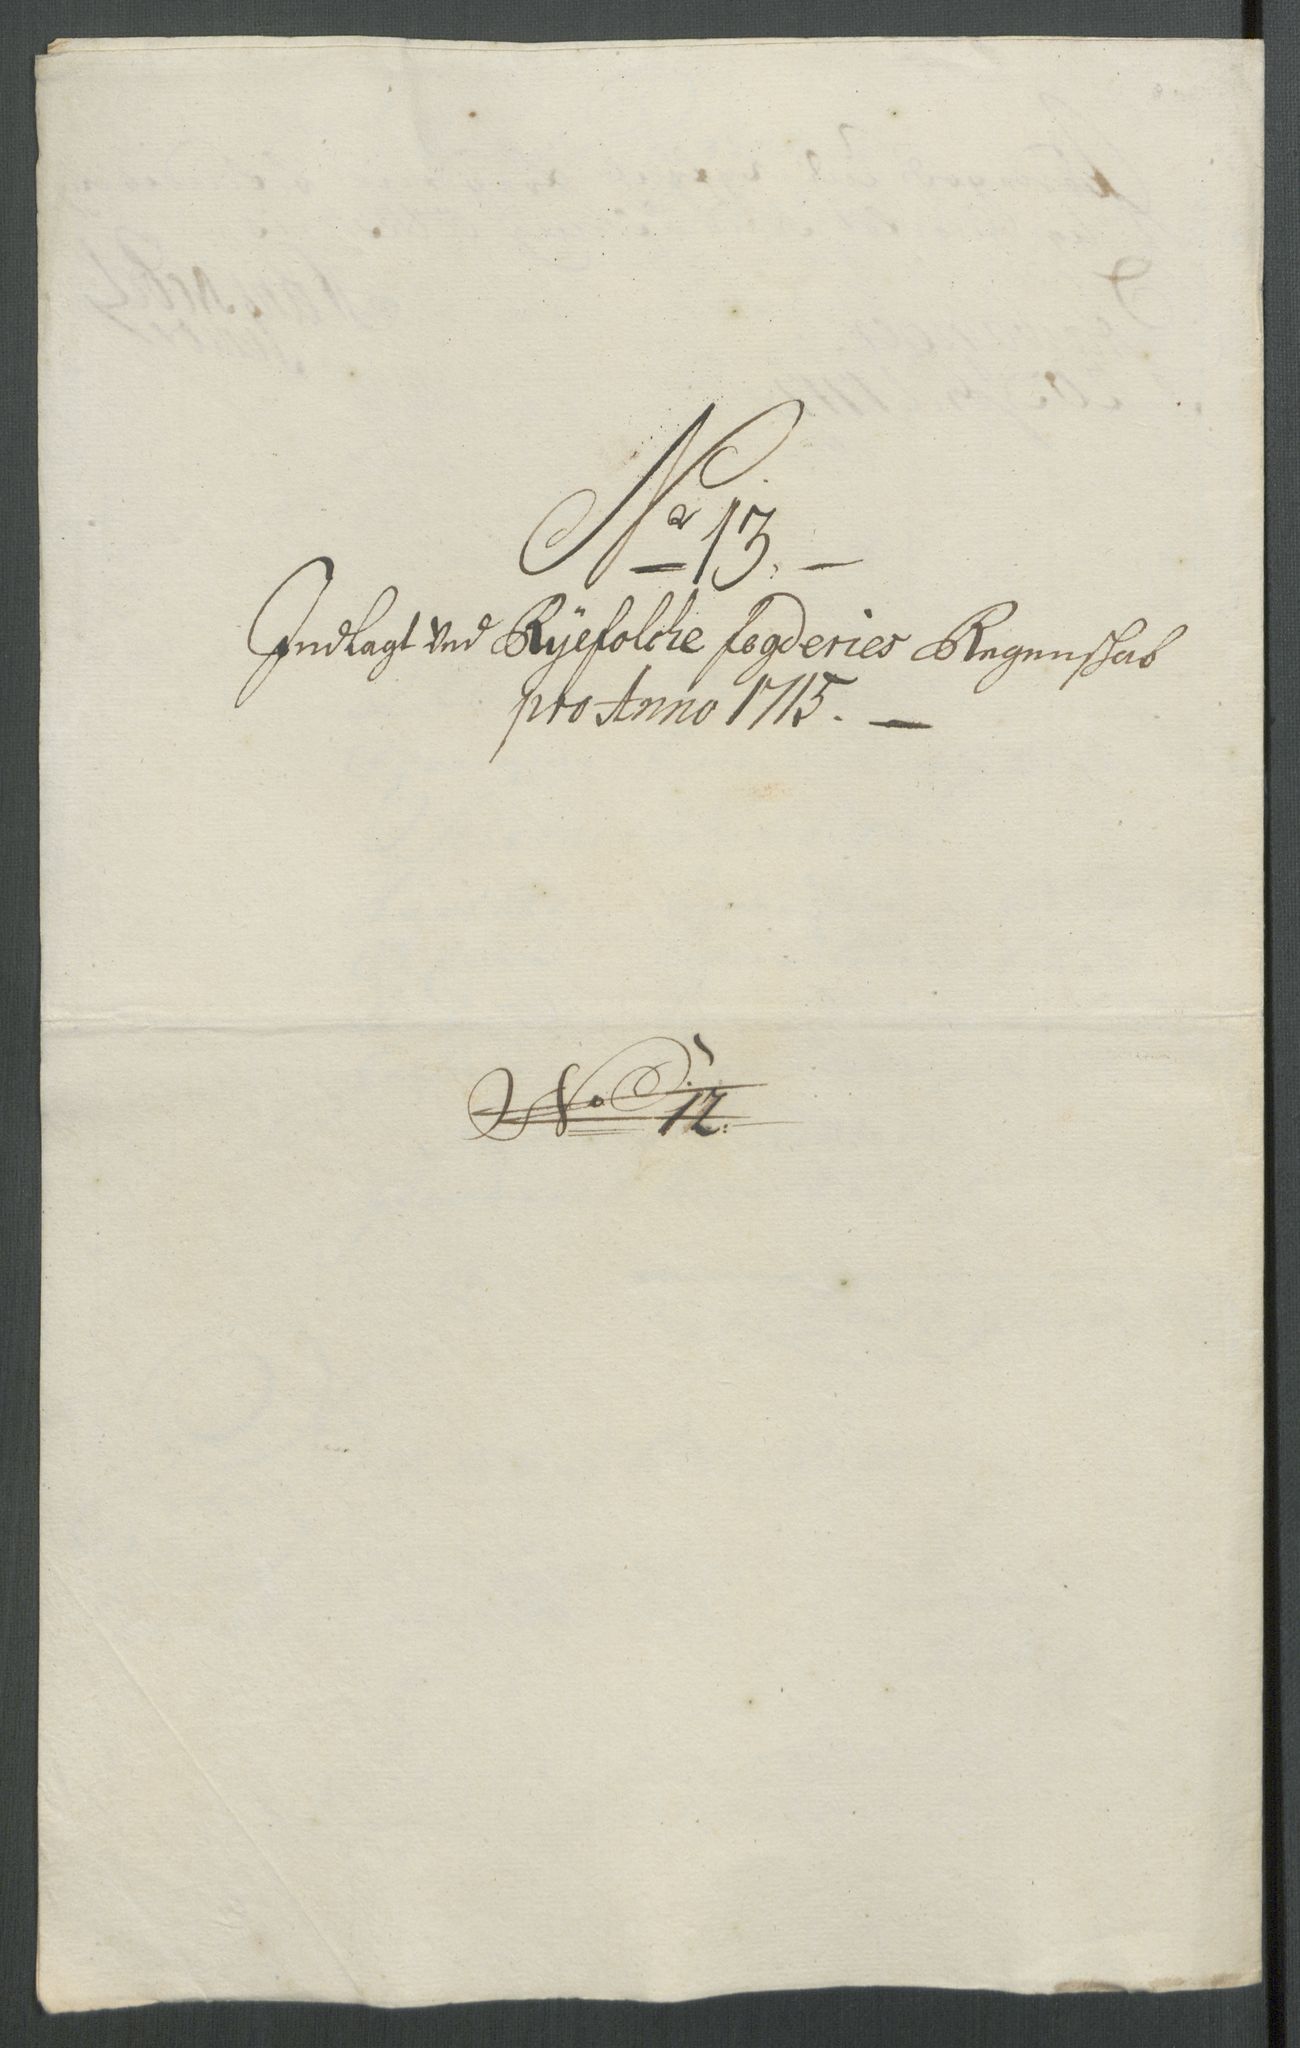 No 13.
Indlagt Ved Ryefolche fogderies Regenskab
pro Anno 1715.
No 12.